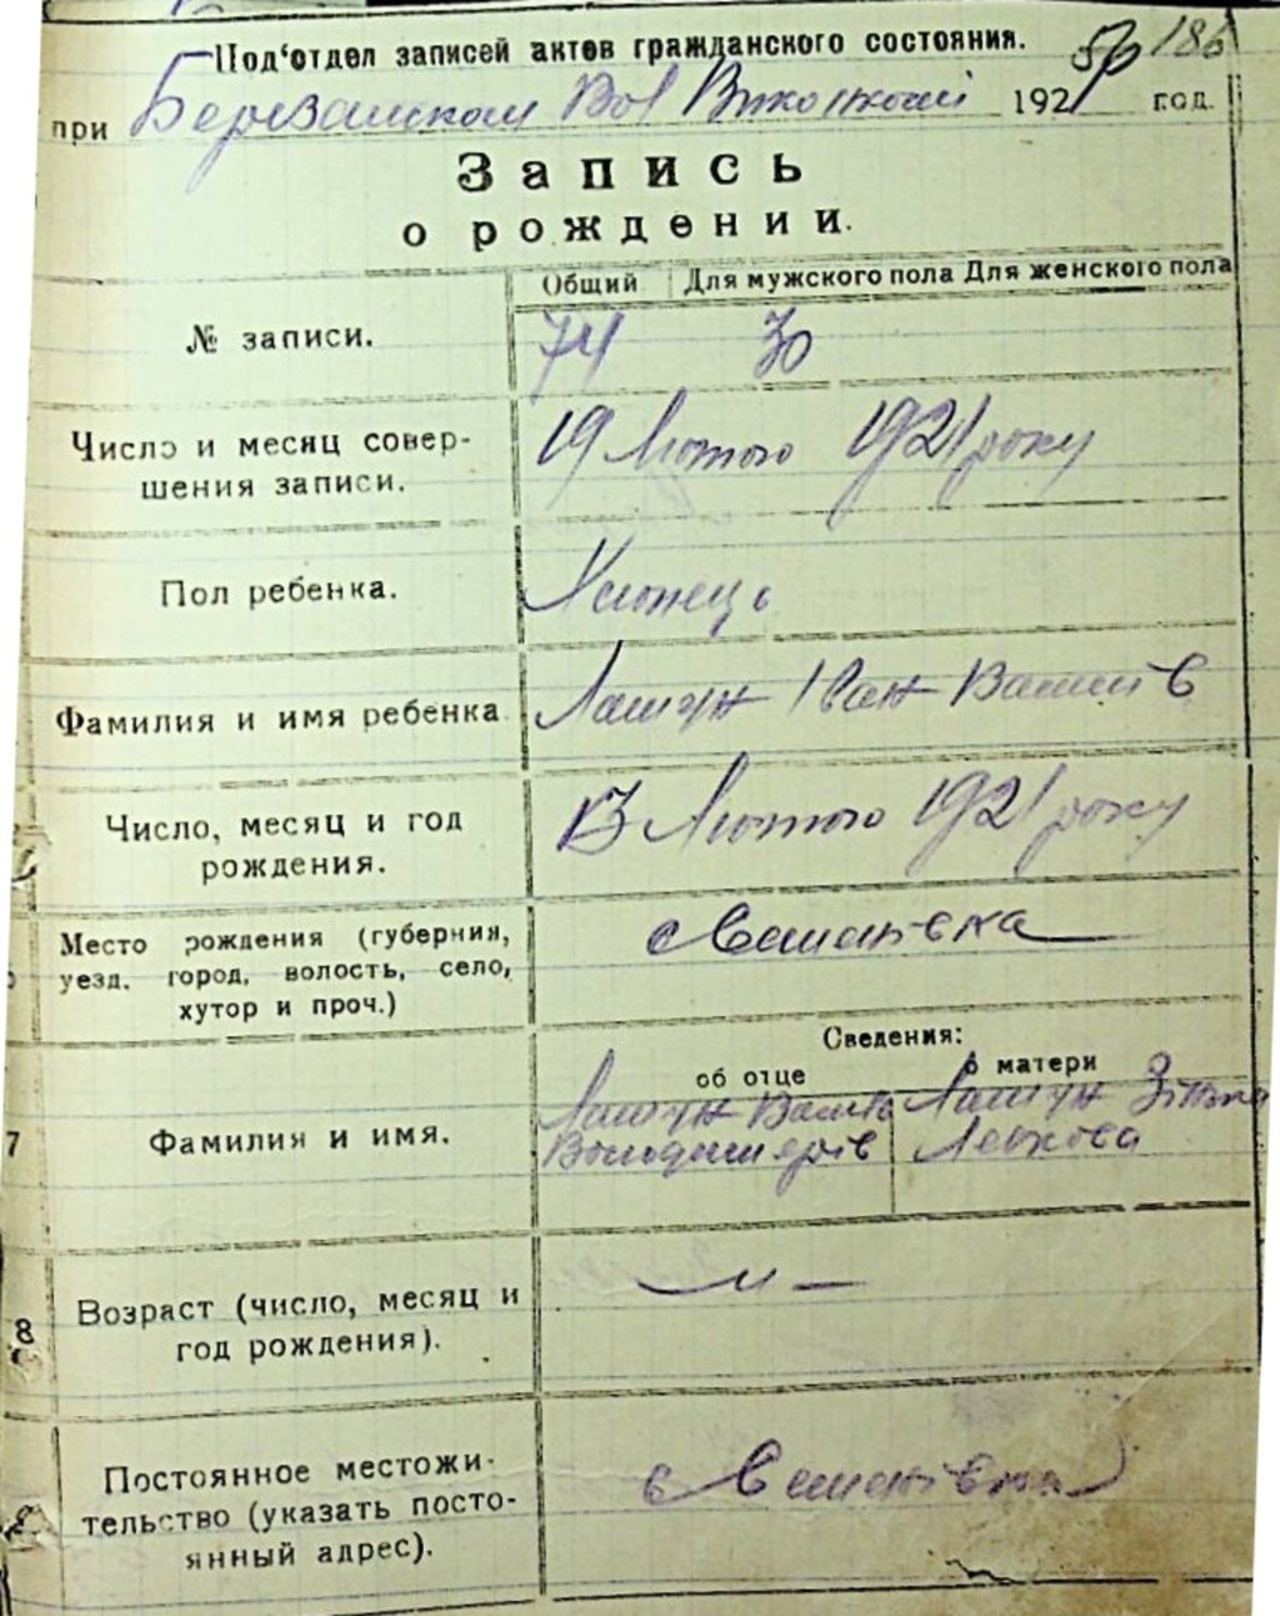 Под‘отдел записей актов гражданского состояния.
186
при Березанском Вол Виконкомі 1921 год.
Запись
о рождении.
Общий Для мужского пола Для женского пола
№ записи. 74 30
Число и месяц совер-
шения записи. 19 Лютого 1921 року
Пол ребенка. Хлопець
Фамилия и имя ребенка Лашун Іван Василів
Число, месяц и год
рождения. 13 Лютого 1921 року
Место рождения (губерния,
уезд, город, волость, село,
хутор и проч.)
с
Сведения:
об отце о матери
7 Фамилия и имя.
Лашун Василь Лашун Зінька
Володимерів Левкова
8 Возраст (число, месяц и
год рождения).
Постоянное местожи-
тельство (указать посто-
янный адрес).
с